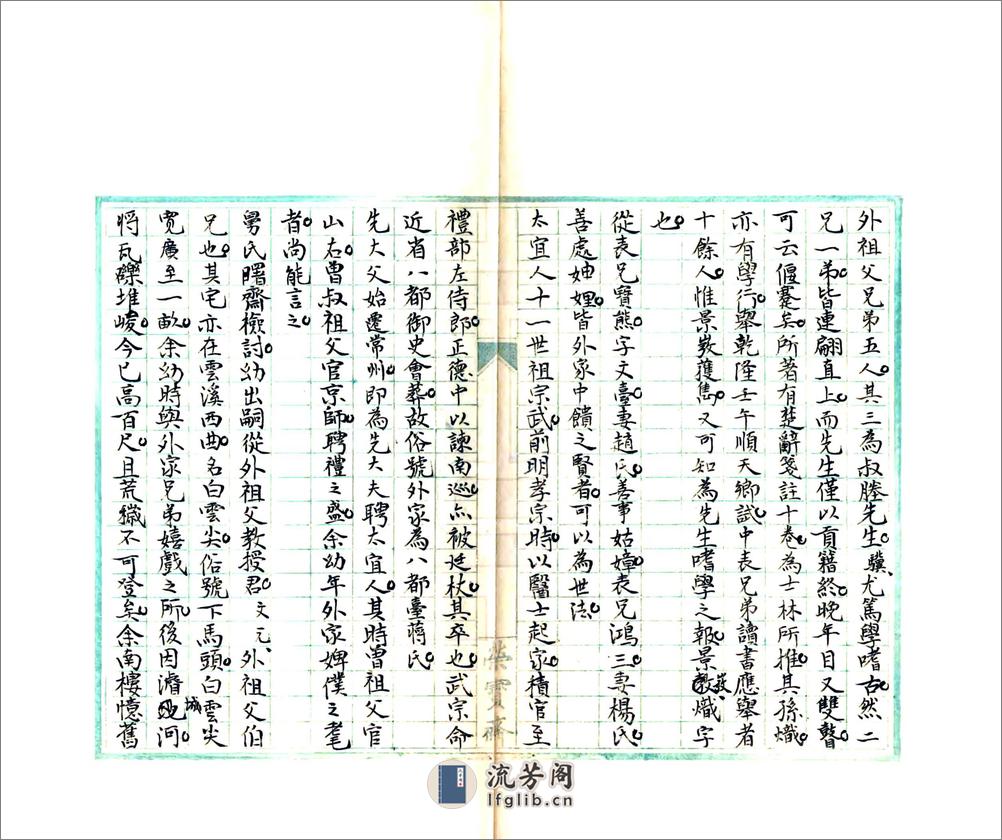 外祖父兄弟五人。其三為叔塍先生。驥、尤篤學嗜古。然二
兄一弟。皆連翩直上。而先生僅以貢籍終。晚年目又雙瞽。
可云偃蹇矣。所著有楚辭箋註十卷。為士林所推。其孫熾
亦有學行。舉乾隆壬午順天鄉試。中表兄弟讀書應舉者
十餘人。惟景獲雋。又可知為先生嗜學之報。景熾字
也。
從表兄賢熊字文臺。妻趙氏。善事姑嫜。表兄鴻三妻楊氏
善處妯娌。皆外家中饋之賢者。可以為世法。
太宜人十一世祖宗武。前明孝宗時。以醫士起家。積官至
禮部左侍郎。正德中以諫南巡。亦被廷杖。其卒也。武宗命
近省八都御史會葬。故俗號外家為八都臺蔣氏。
先大父始遷常州。即為先大夫聘太宜人。其時曾祖父官
山右。曾叔祖父官京師。聘禮之盛。余幼年外家婢僕之耄
者。尚能言之。
舅氏曙齋檢討。幼出嗣從外祖父教授君。文元、外祖父伯
兄也。其宅亦在雲溪西曲。名白雲尖。俗號下馬頭。白雲尖
寬廣至一畝。余幼時與外家兄弟嬉戲之所。後因濬城河。
將瓦礫堆峻。今已高百尺。且荒穢不可登矣。余南樓憶舊
榮寶齋
流芳阁
lfglib.cn